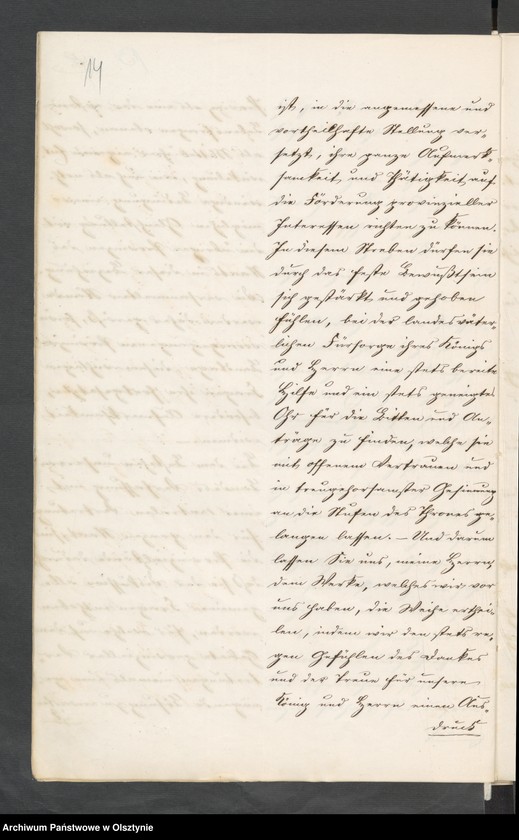 14
ist, in die angemessene und
vortheilhafte Stellung ver-
setzt, ihre ganze Aufmerk-
samkeit und Thätigkeit auf
die Förderung provinzieller
Interessen richten zu können.
In diesem Streben dürfen sie
durch das feste Bewußtsein
sich gestärkt und gehoben
fühlen, bei der landesväter-
lichen Fürsorge ihres Königs
und Herrn eine stets bereite
Hilfe und ein stets geneigtes
Ohr für die Bitten und An-
träge zu finden, welche sie
mit offenem Vertrauen und
in treugehorsamster Gesinnung
an die Stufen des Thrones ge-
langen lassen. – Und darum
lassen Sie uns, meine Herrn,
dem Werke, welches wir vor
uns haben, die Weihe erthei-
len, indem wir den stets re-
gen Gefühlen des Dankes
und der Treue für unsern
König und Herrn einen Aus-
druck
Archiwum Państwowe w Olsztynie